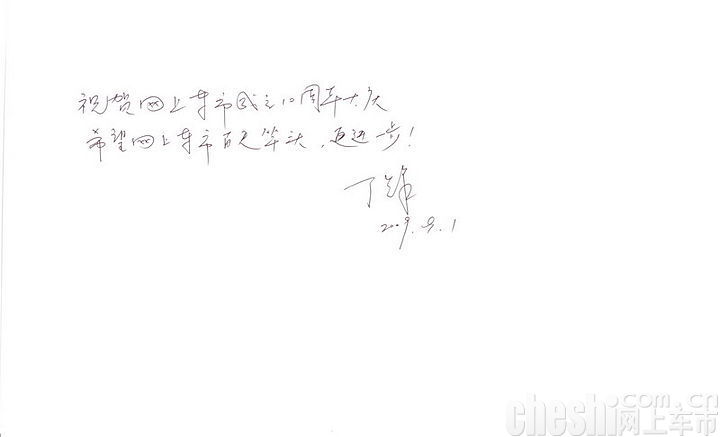 祝贺网上车市成立10周年大庆
希望网上车市百尺竿头,更进一步!
丁
2009.9.1
.com.cn
cheshi网上车市